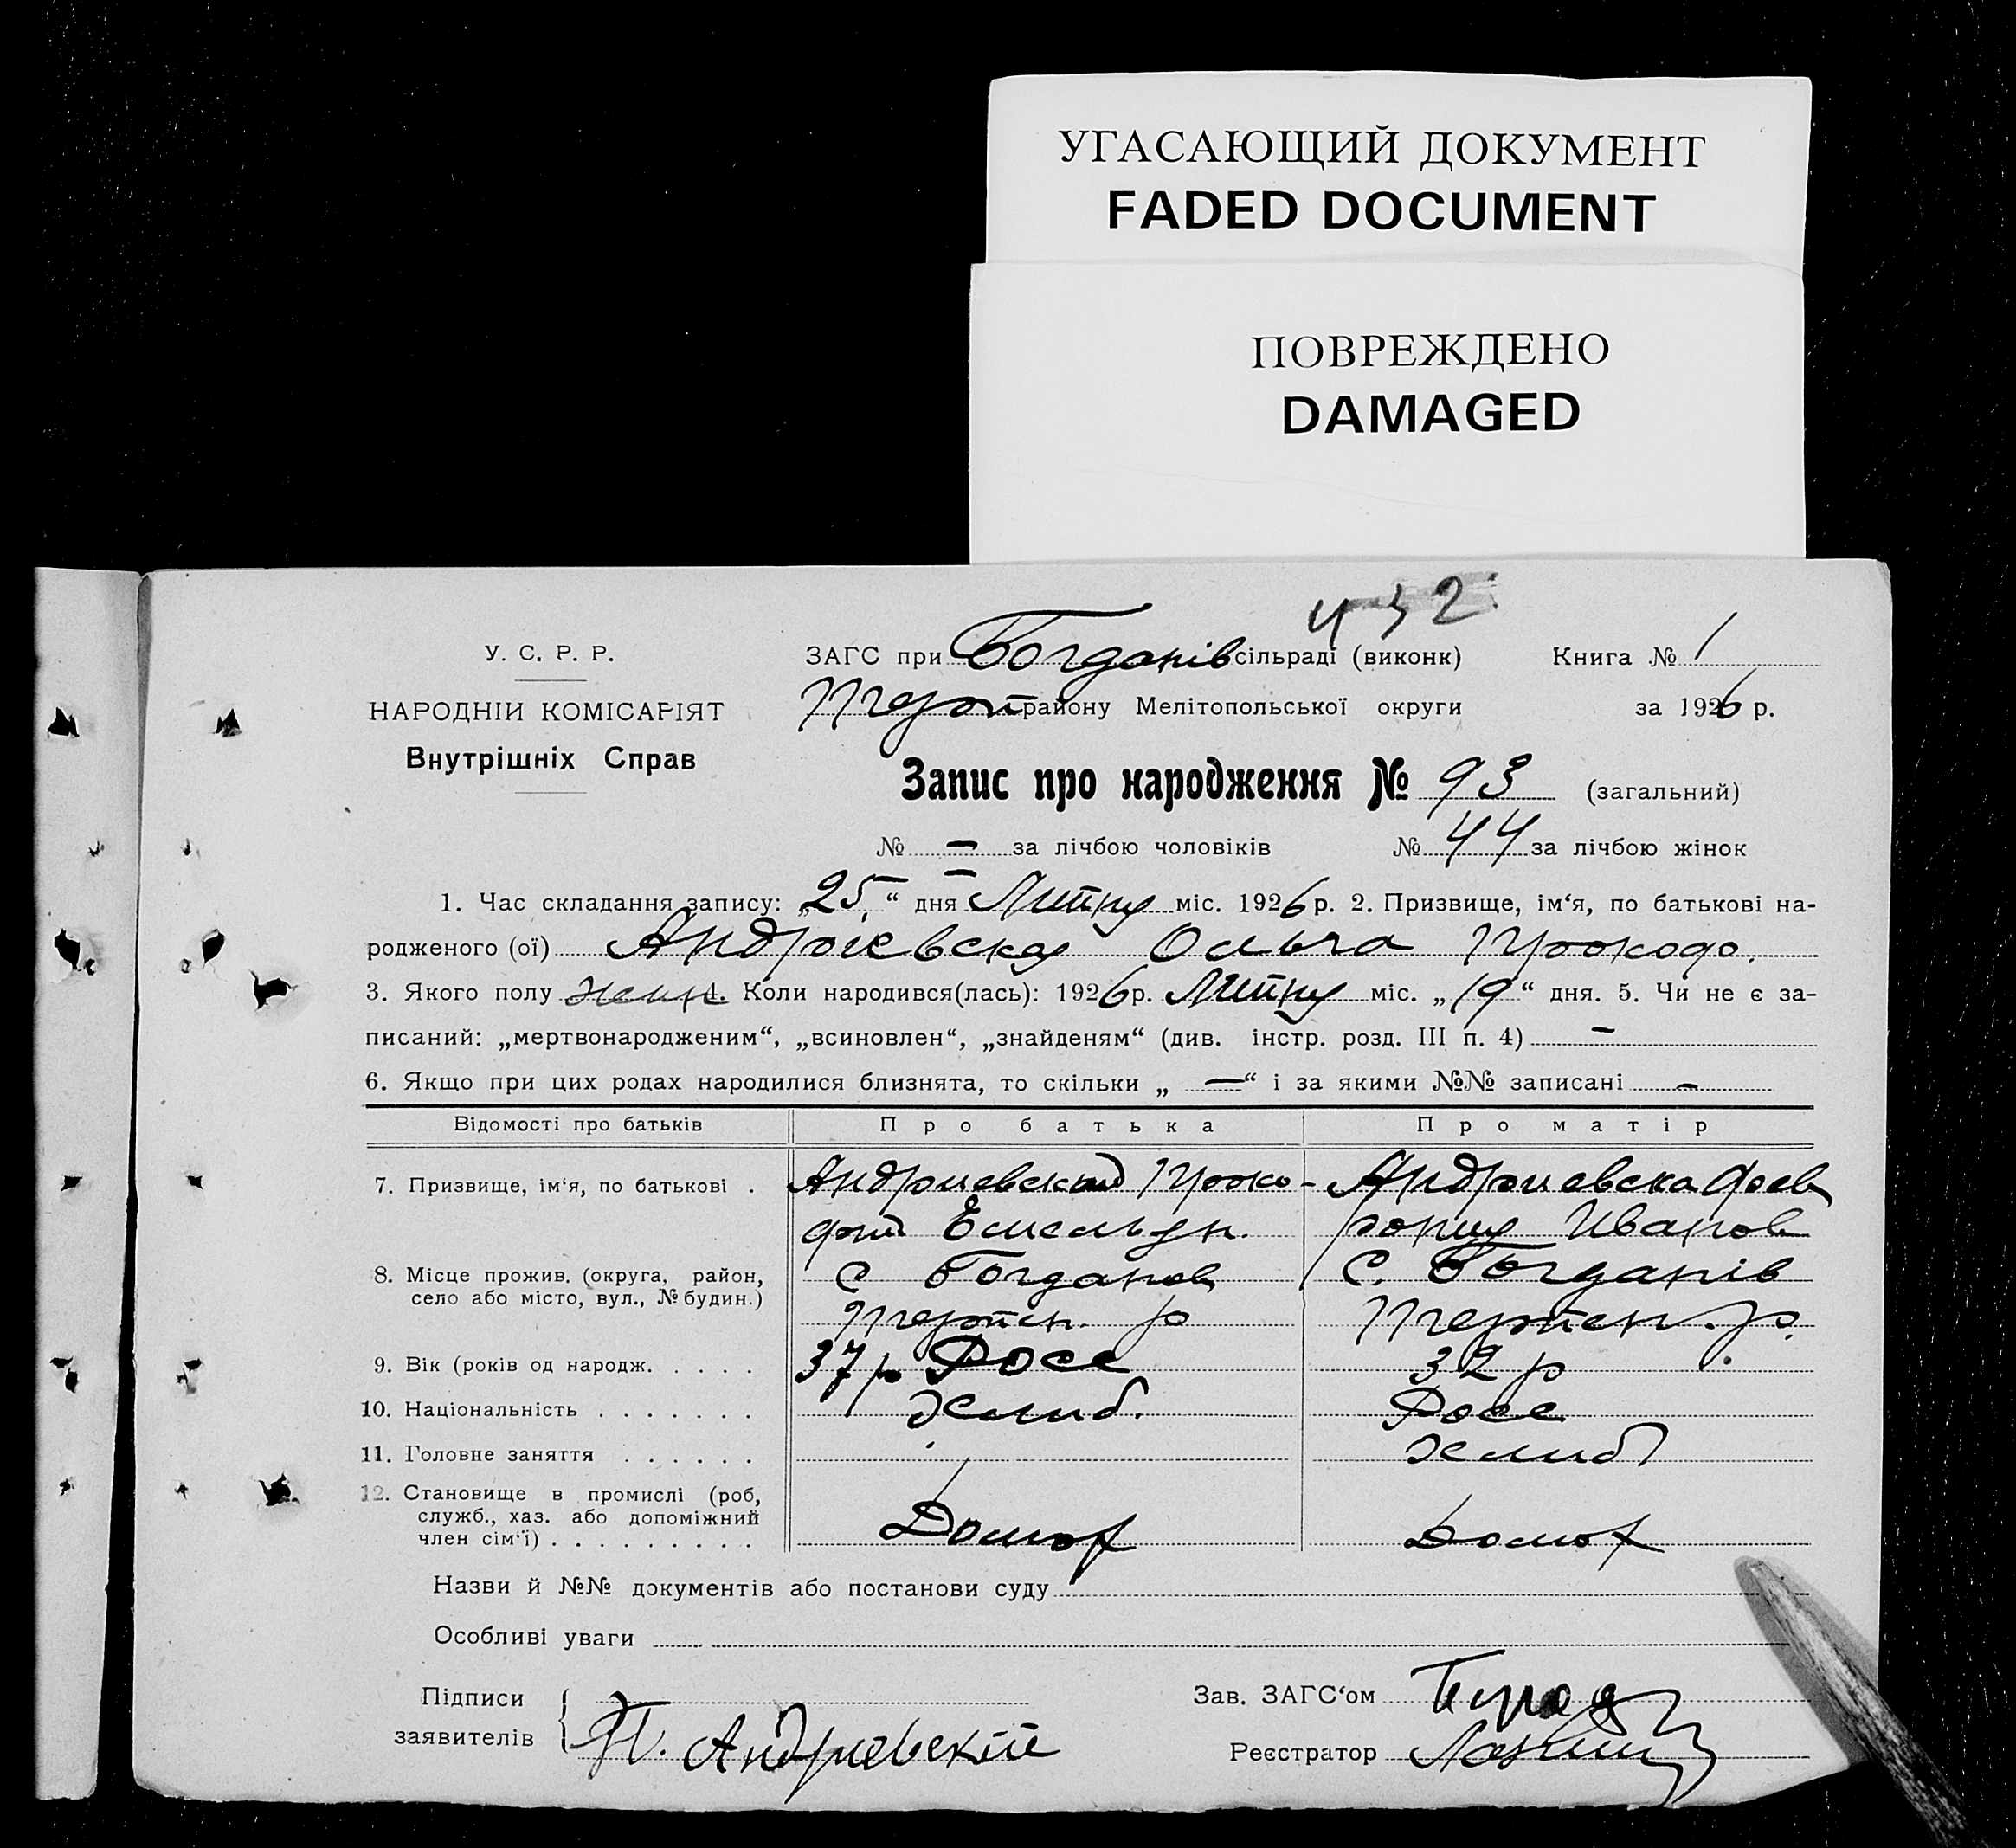 УГАСАЮЩИЙ ДОКУМЕНТ
FADED DOCUMENT
ПОВРЕЖДЕНО
DAMAGED
432
У. С. Р. Р.
НАРОДНІЙ КОМІСАРІЯТ
Внутрішніх Справ
ЗАГС при Богданів сільраді (виконк) Книга № 1
Терп району Мелітопольської округи за 1926 р.
Запис про народження № 93 (загальний)
№ — за лічбою чоловіків № 44 за лічбою жінок
1. Час складання запису: „25“ дня Липня міс. 1926 р. 2. Призвище, ім‘я, по батькові на-
родженого (ої) Андриевская Ольга Прокофо.
3. Якого полу жін 4. Коли народився(лась): 1926 р. Липня міс. „19“ дня. 5. Чи не є за-
писаний: „мертвонародженим“, „всиновлен“, „знайденям“ (див. інстр. розд. III п. 4) —
6. Якщо при цих родах народилися близнята, то скільки „ — “ і за якими №№ записані —
Відомості про батьків Про батька Про матір
7. Призвище, ім‘я, по батькові . Андриевский Проко-
фий Емельян.
Андриевска Фев
рония Иванов
8. Місце прожив. (округа, район,
село або місто, вул., № будин.)
с Богданов
Терпен. р
С. Богданів
Терпен. р.
9. Вік (років од народж. . . . . 37 р Росс 32 р
10. Національність . . . . . . . Хлиб. Росс
11. Головне заняття . . . . . . Хлиб
12. Становище в промислі (роб,
служб., хаз. або допоміжний
член сім‘ї) . . . . . . . . . Домох Домох
Назви й №№ документів або постанови суду
Особливі уваги
Підписи
заявителів
П. Андриевский
Зав. ЗАГС‘ом
Реєстратор